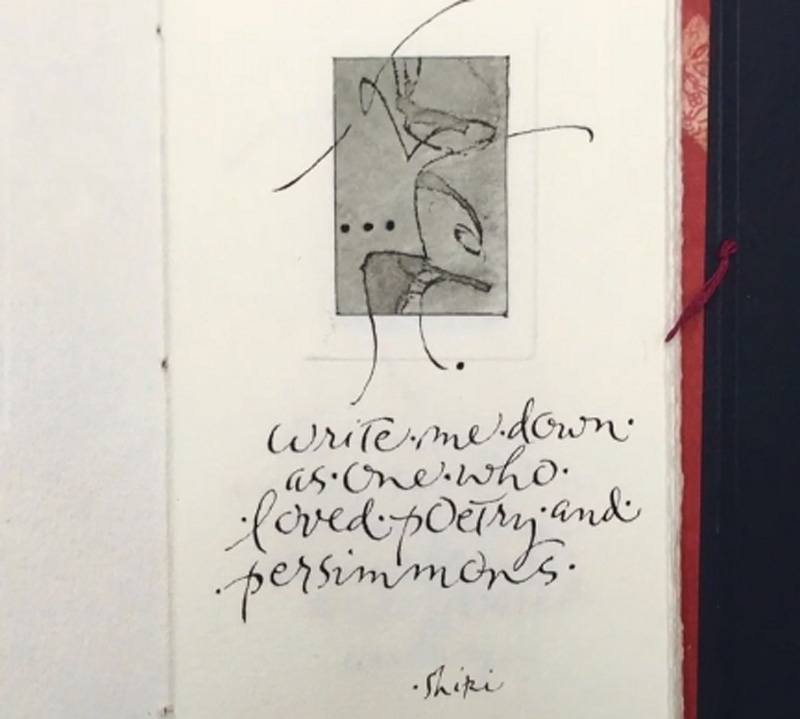 write·me·down·
as·one·who·
·loved·poetry·and·
·persimmons·
·Shiki